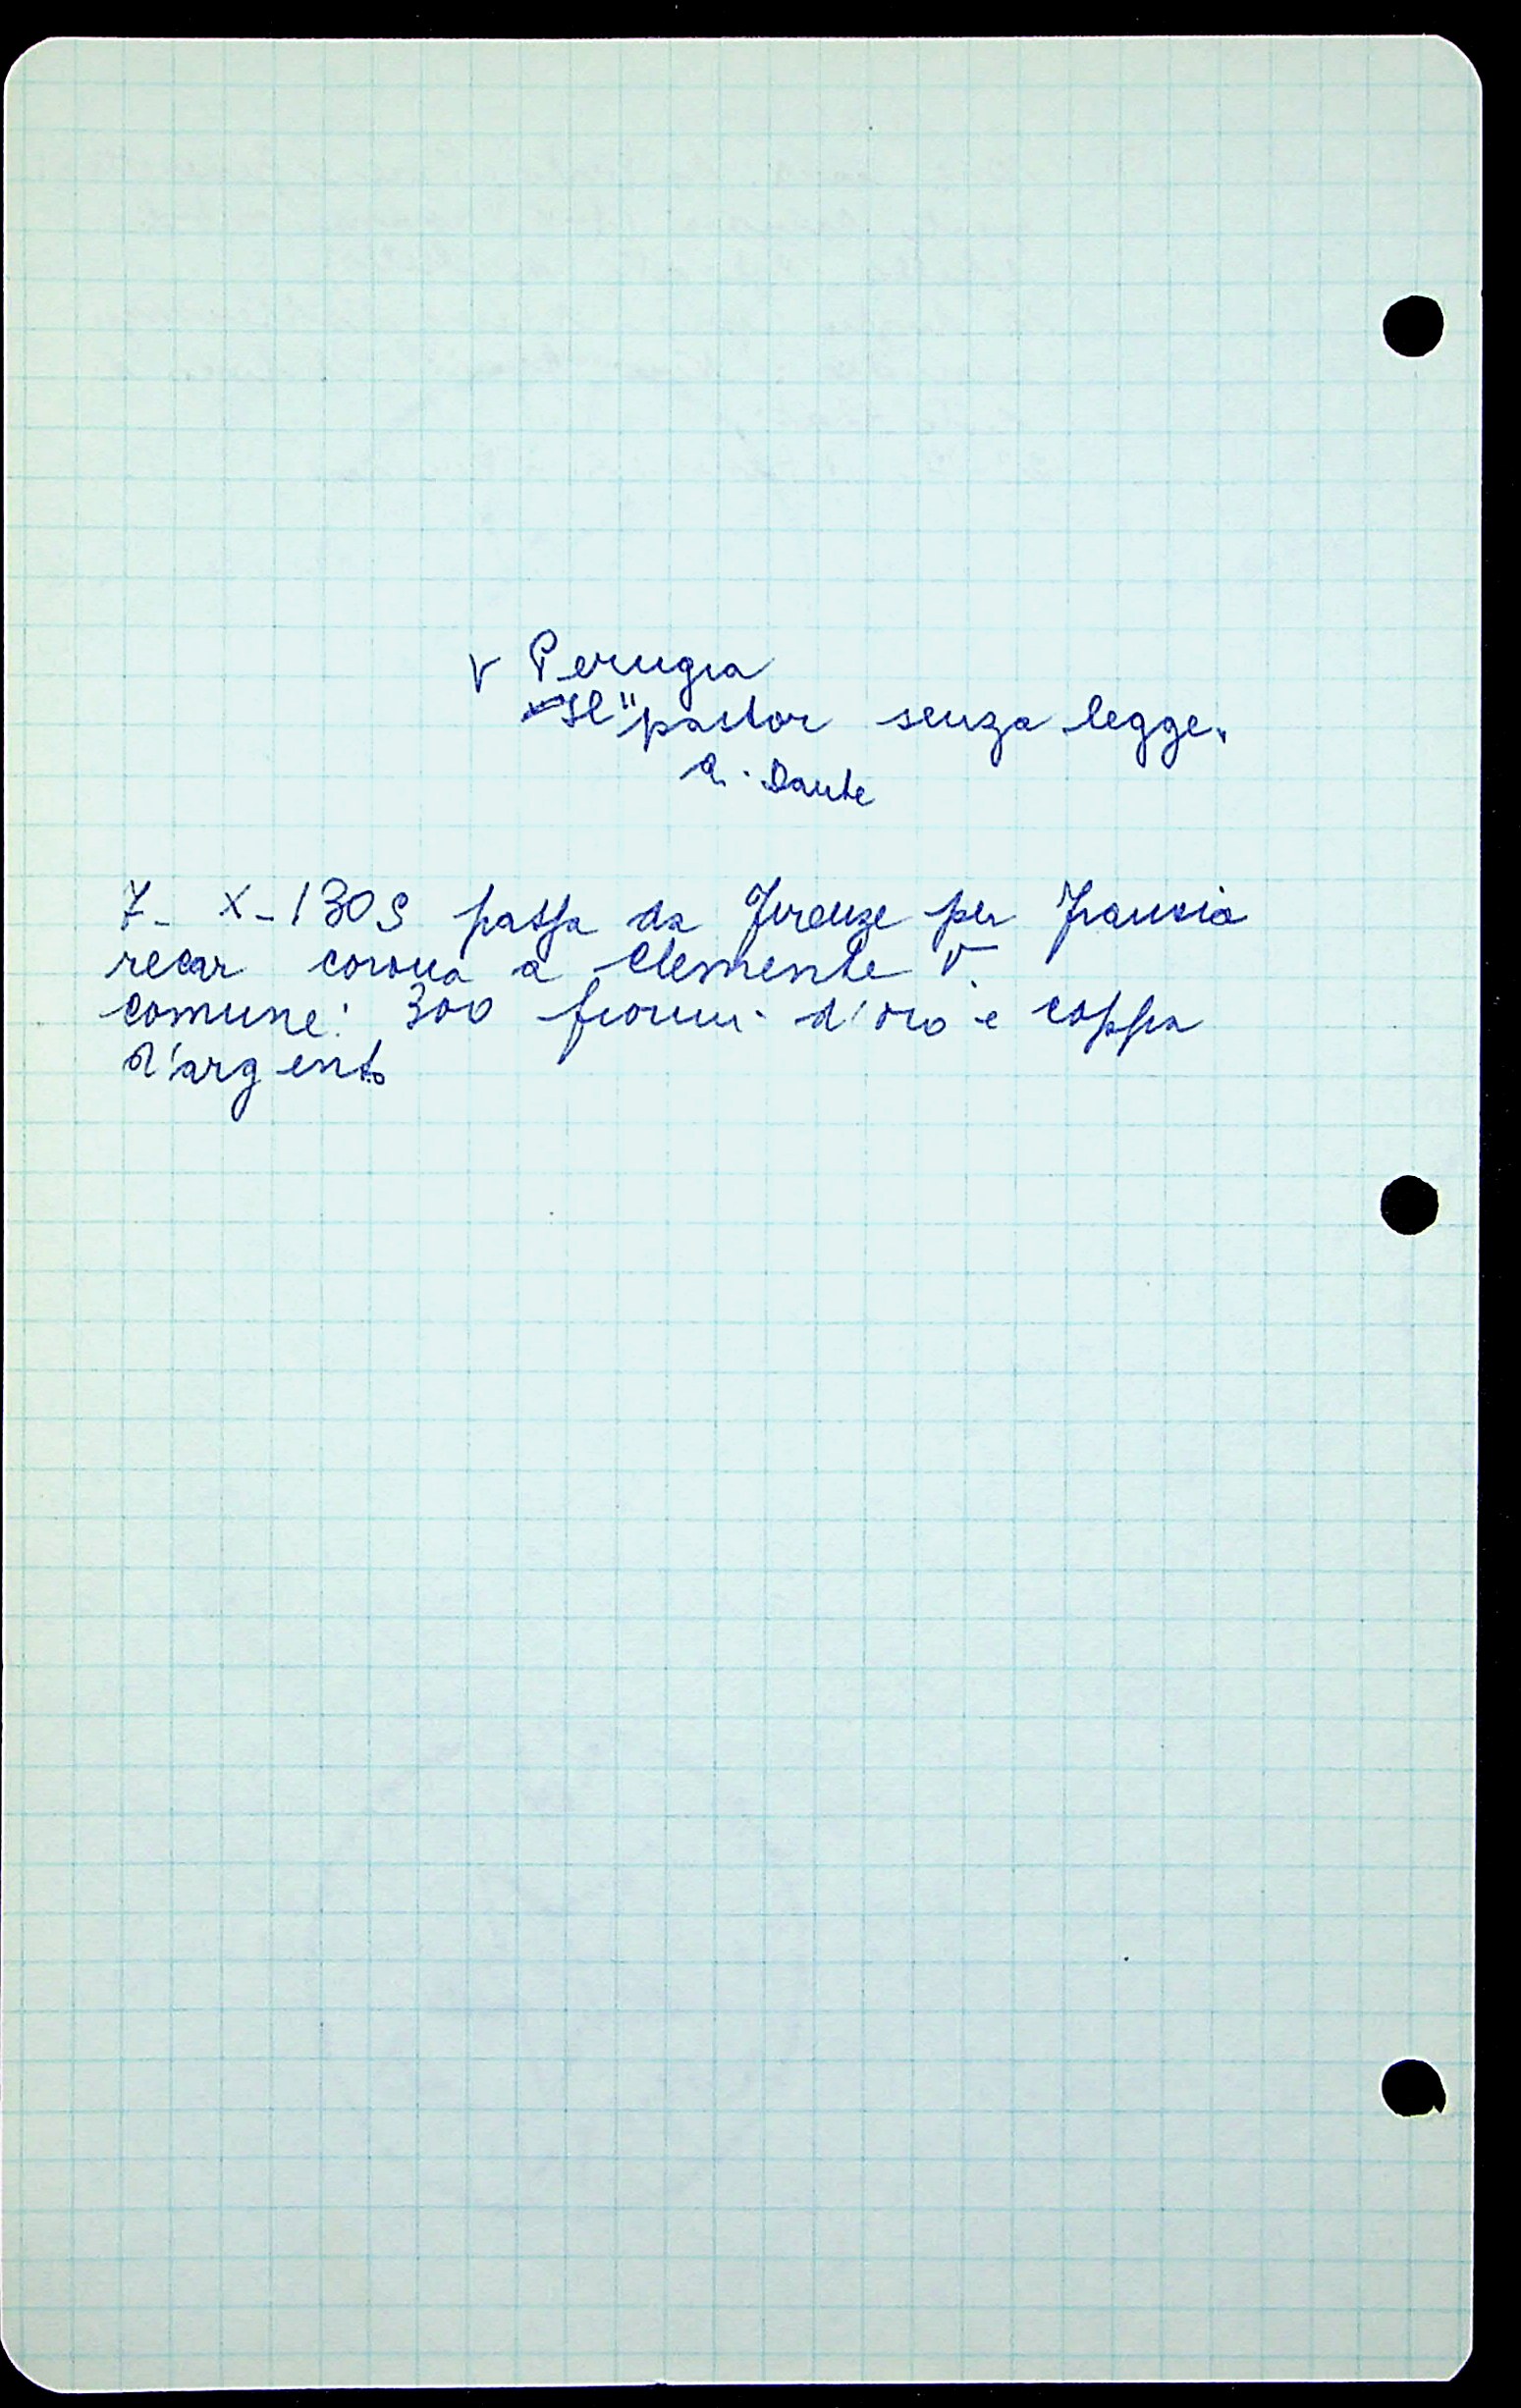 V Perugia
Il "pastor senza legge"
a. Dante
7 - X - 1305 passa da Firenze per Francia
recar corona a Clemente V.
comune: 300 fiorini d'oro e coppa
d'argento